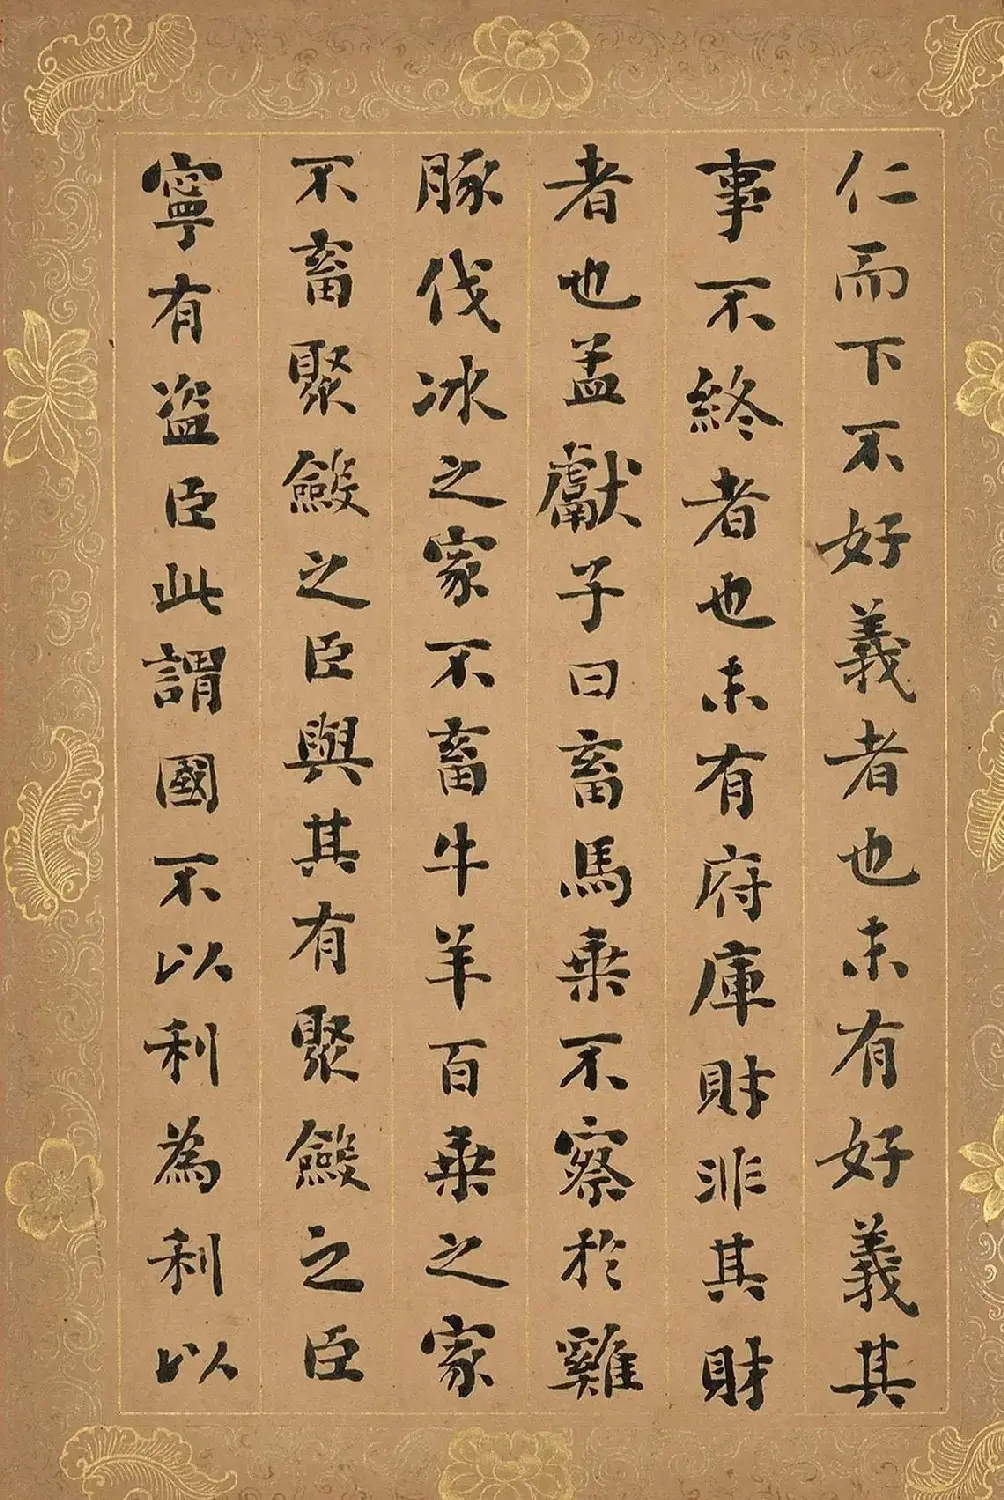 仁而下不好義者也未有好義其
事不終者也未有府庫財非其財
者也孟獻子曰畜馬乗不察於雞
豚伐冰之家不畜牛羊百乗之家
不畜聚斂之臣與其有聚斂之臣
寧有盗臣此謂國不以利為利以